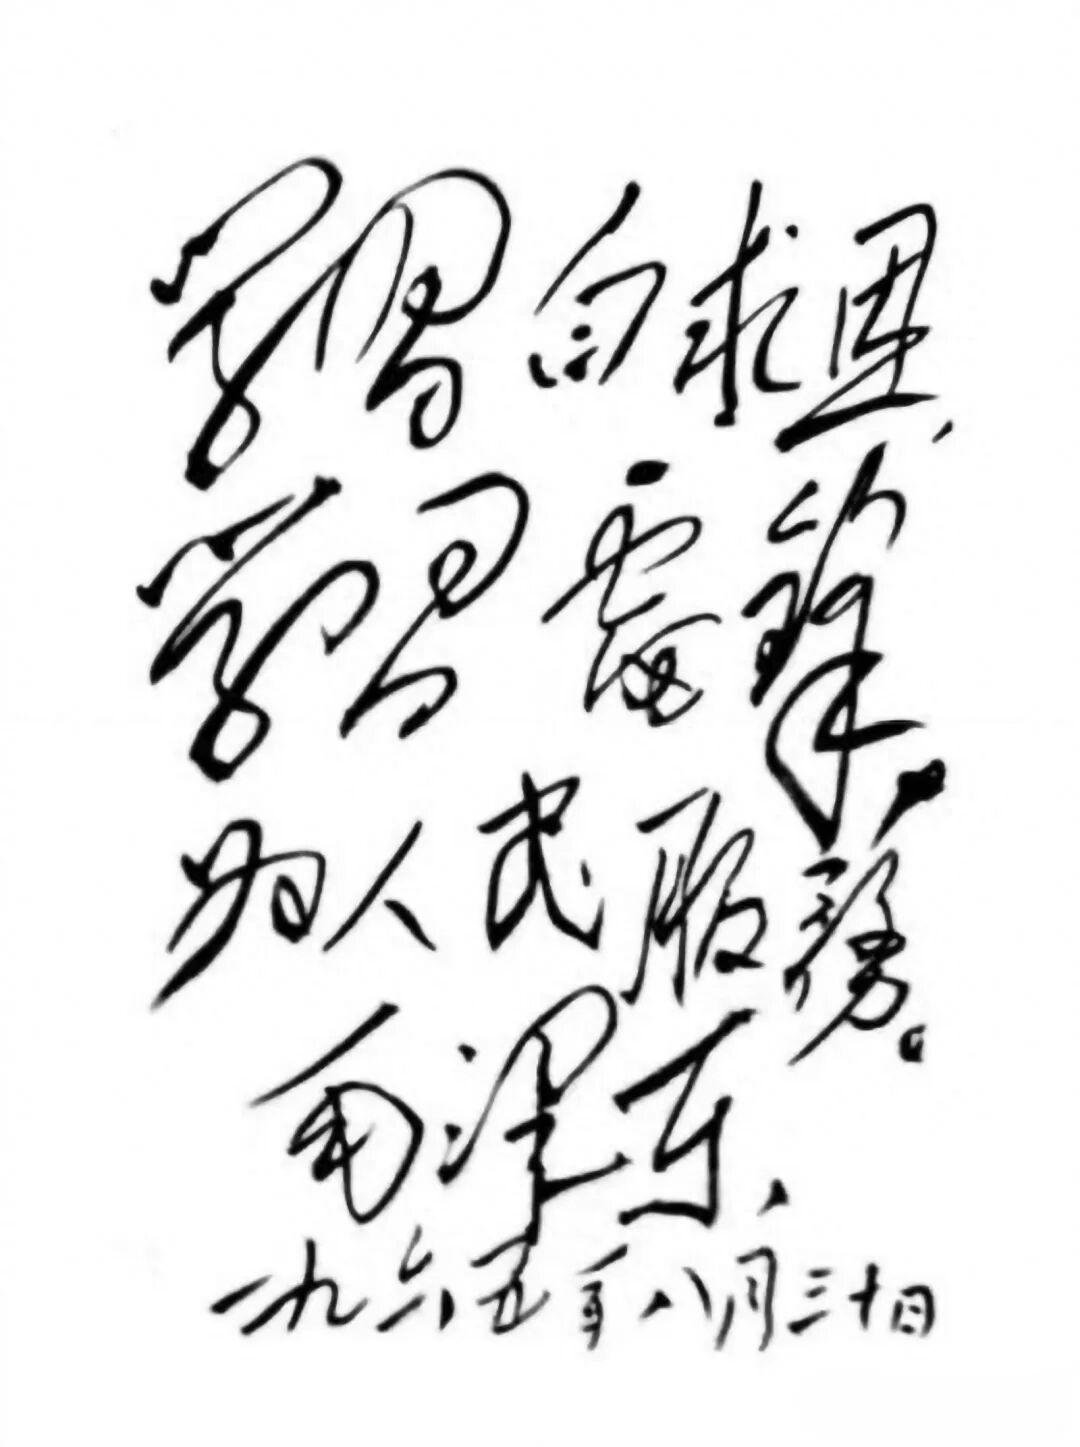 学习白求恩，
学习雷锋，
为人民服務。
毛泽东
一九六五年八月三十日